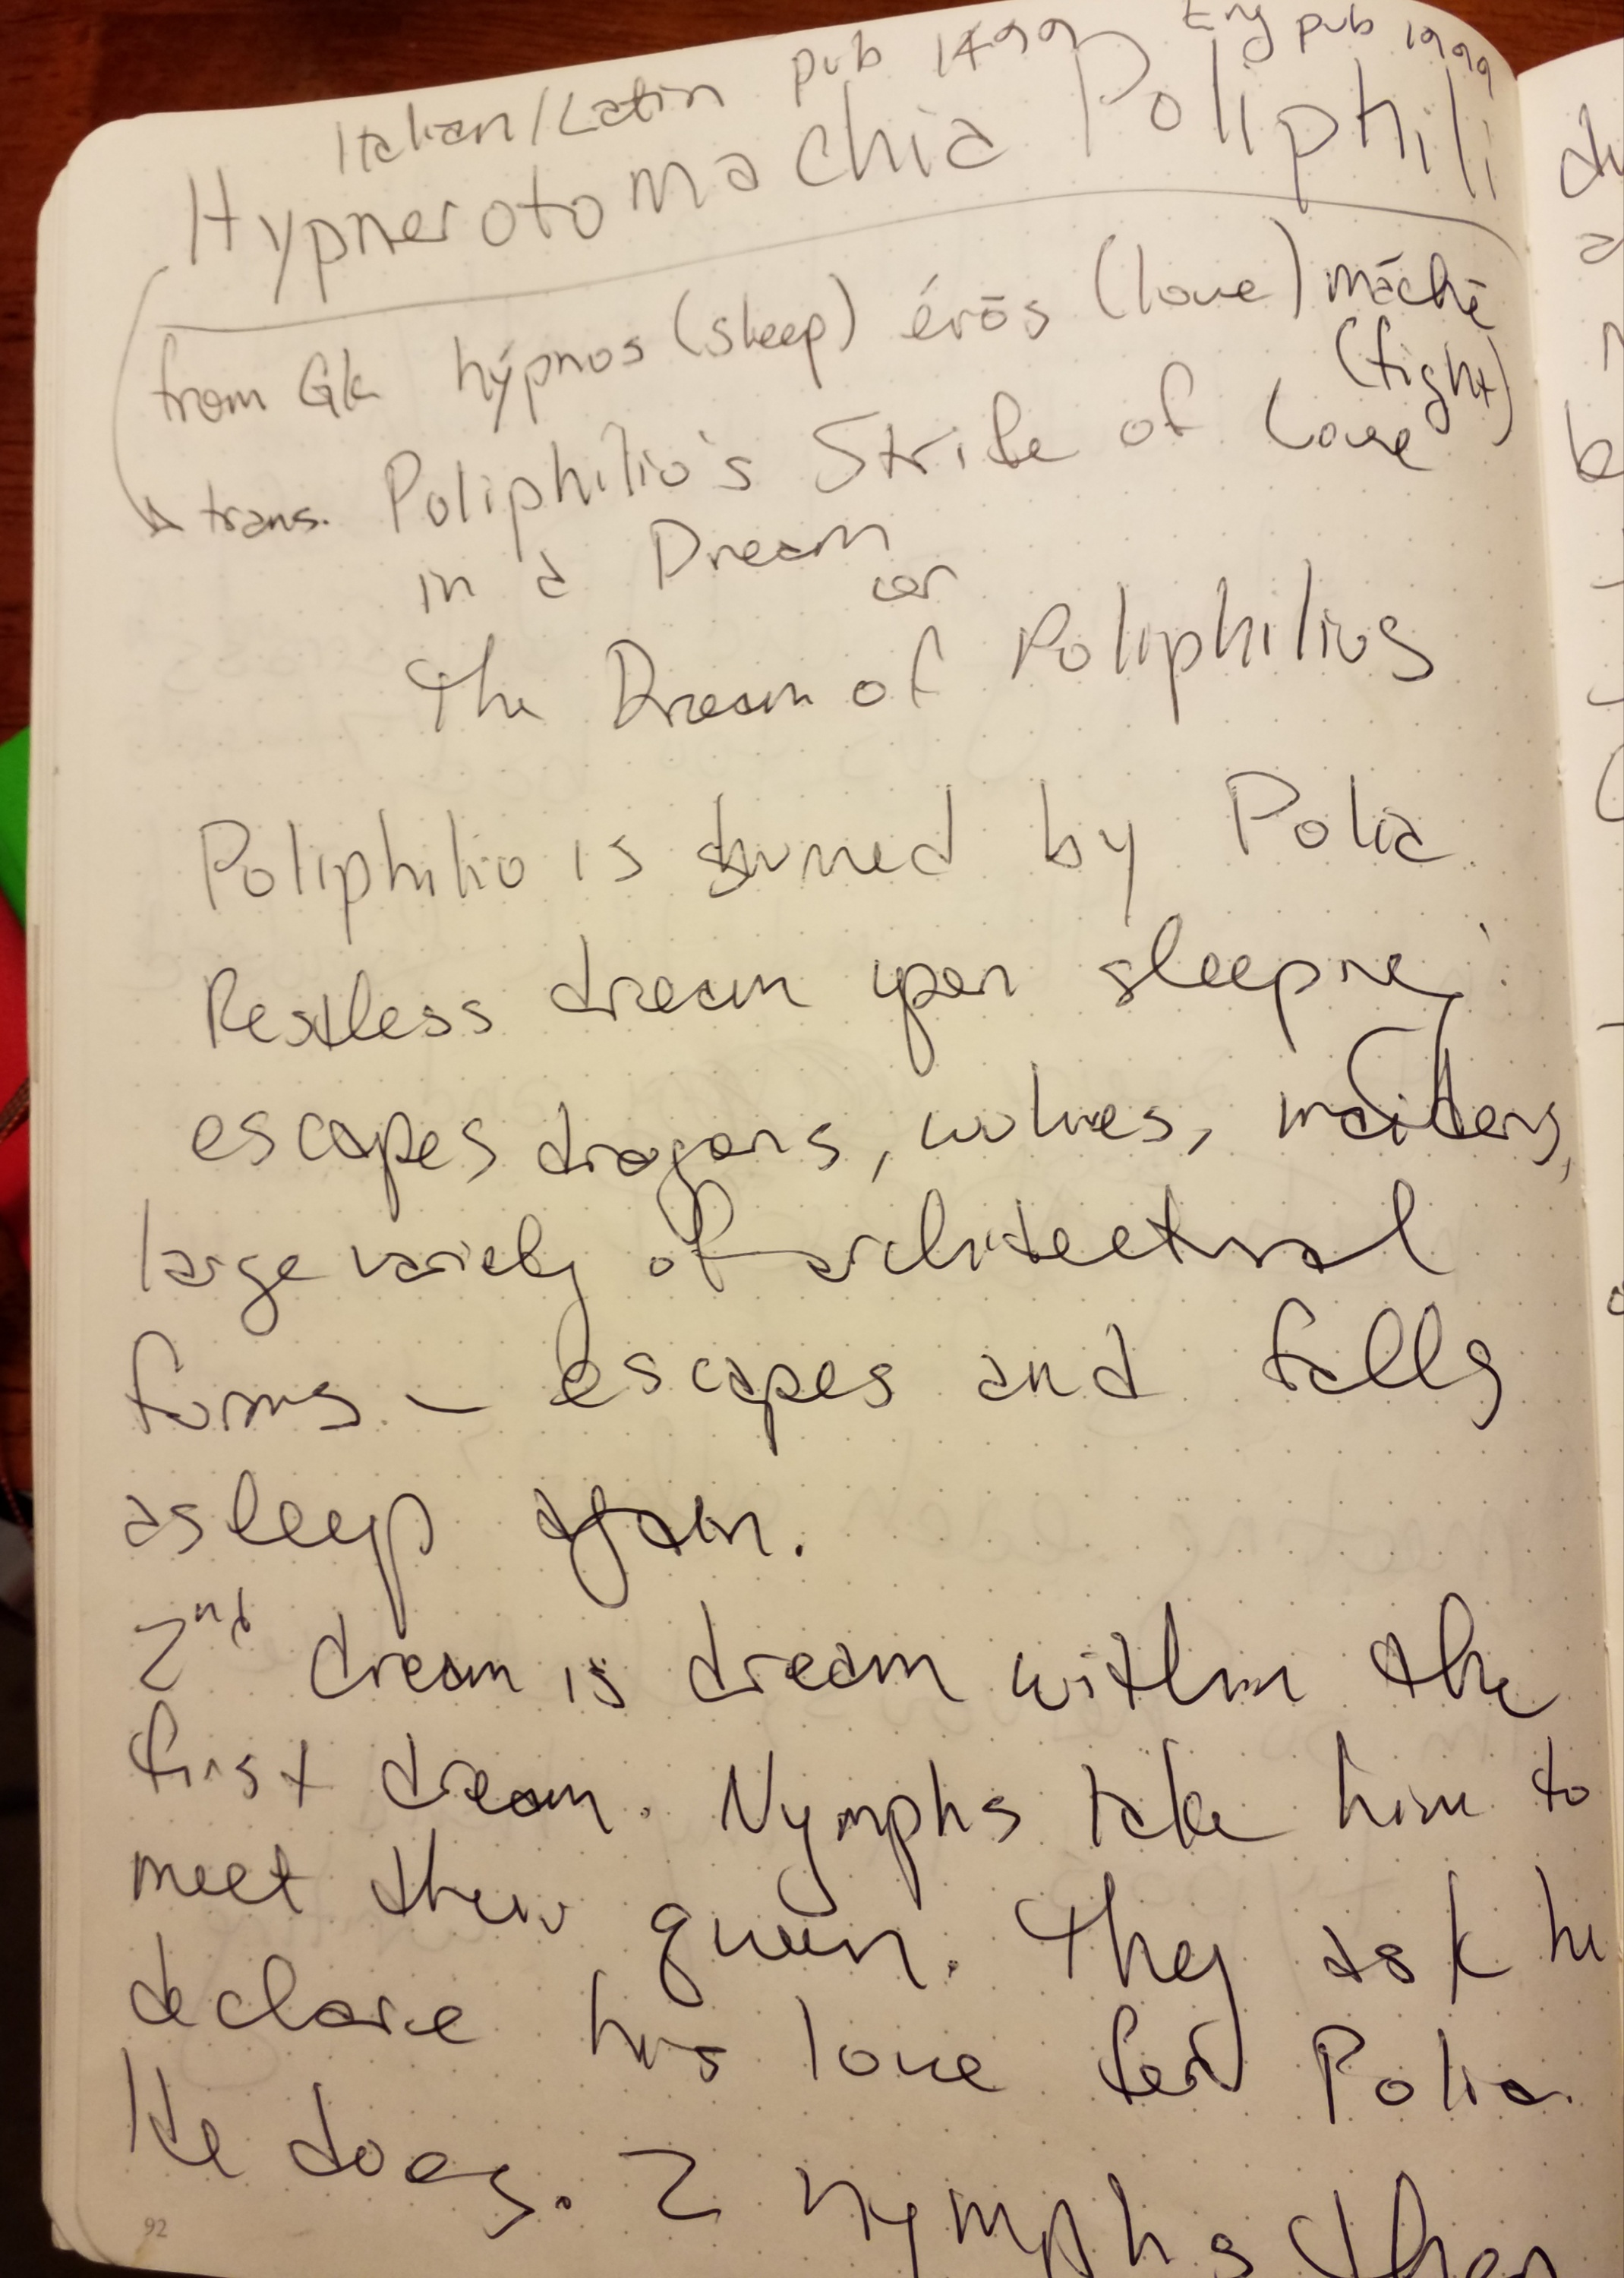 Italian/Latin pub 1499 Eng pub 1999
Hypnerotomachia Poliphili
from Gk hýpnos (sleep) érōs (love) máchē
(fight)
trans. Poliphilio's Strife of Love
in a Dream
or
The Dream of Poliphilius
Poliphilio is shunned by Polia.
Restless dream upon sleeping:
escapes dragons, wolves, maidens,
large variety of architectural
forms – escapes and falls
asleep again.
2nd dream is dream within the
first dream. Nymphs take him to
meet their queen. They ask he
declare his love for Polia.
He does. 2 nymphs then
92